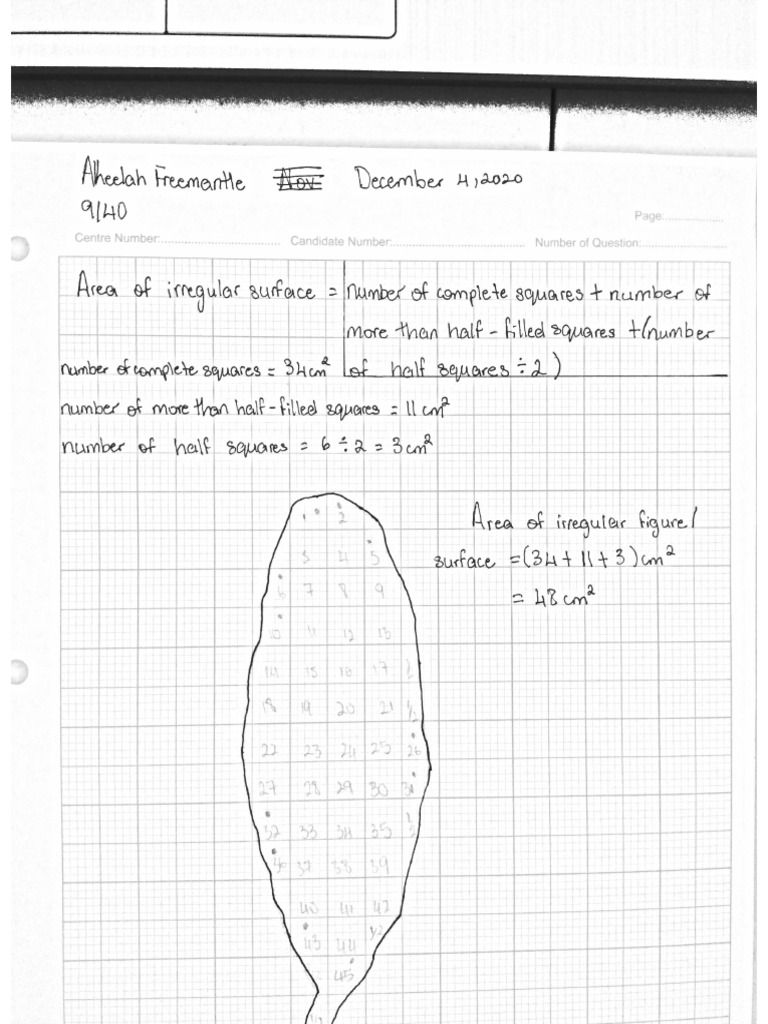 Aheelah Freemantle Nov December 4, 2020
9/40
Page:
Centre Number: Candidate Number: Number of Question:
Area of irregular surface = number of complete squares + number of
more than half-filled squares + (number
number of complete squares = 34cm² of half squares ÷ 2)
number of more than half-filled squares = 11 cm²
number of half squares = 6 ÷ 2 = 3cm²
Area of irregular figure/
surface = (34 + 11 + 3) cm²
= 48 cm²
1 2
3 4 5
6 7 8 9
10 11 12 13
14 15 16 17
18 19 20 21 1/2
22 23 24 25 26
27 28 29 30
32 33 34 35 1/2
37 38 39
40 41 42
43 44 1/2
45